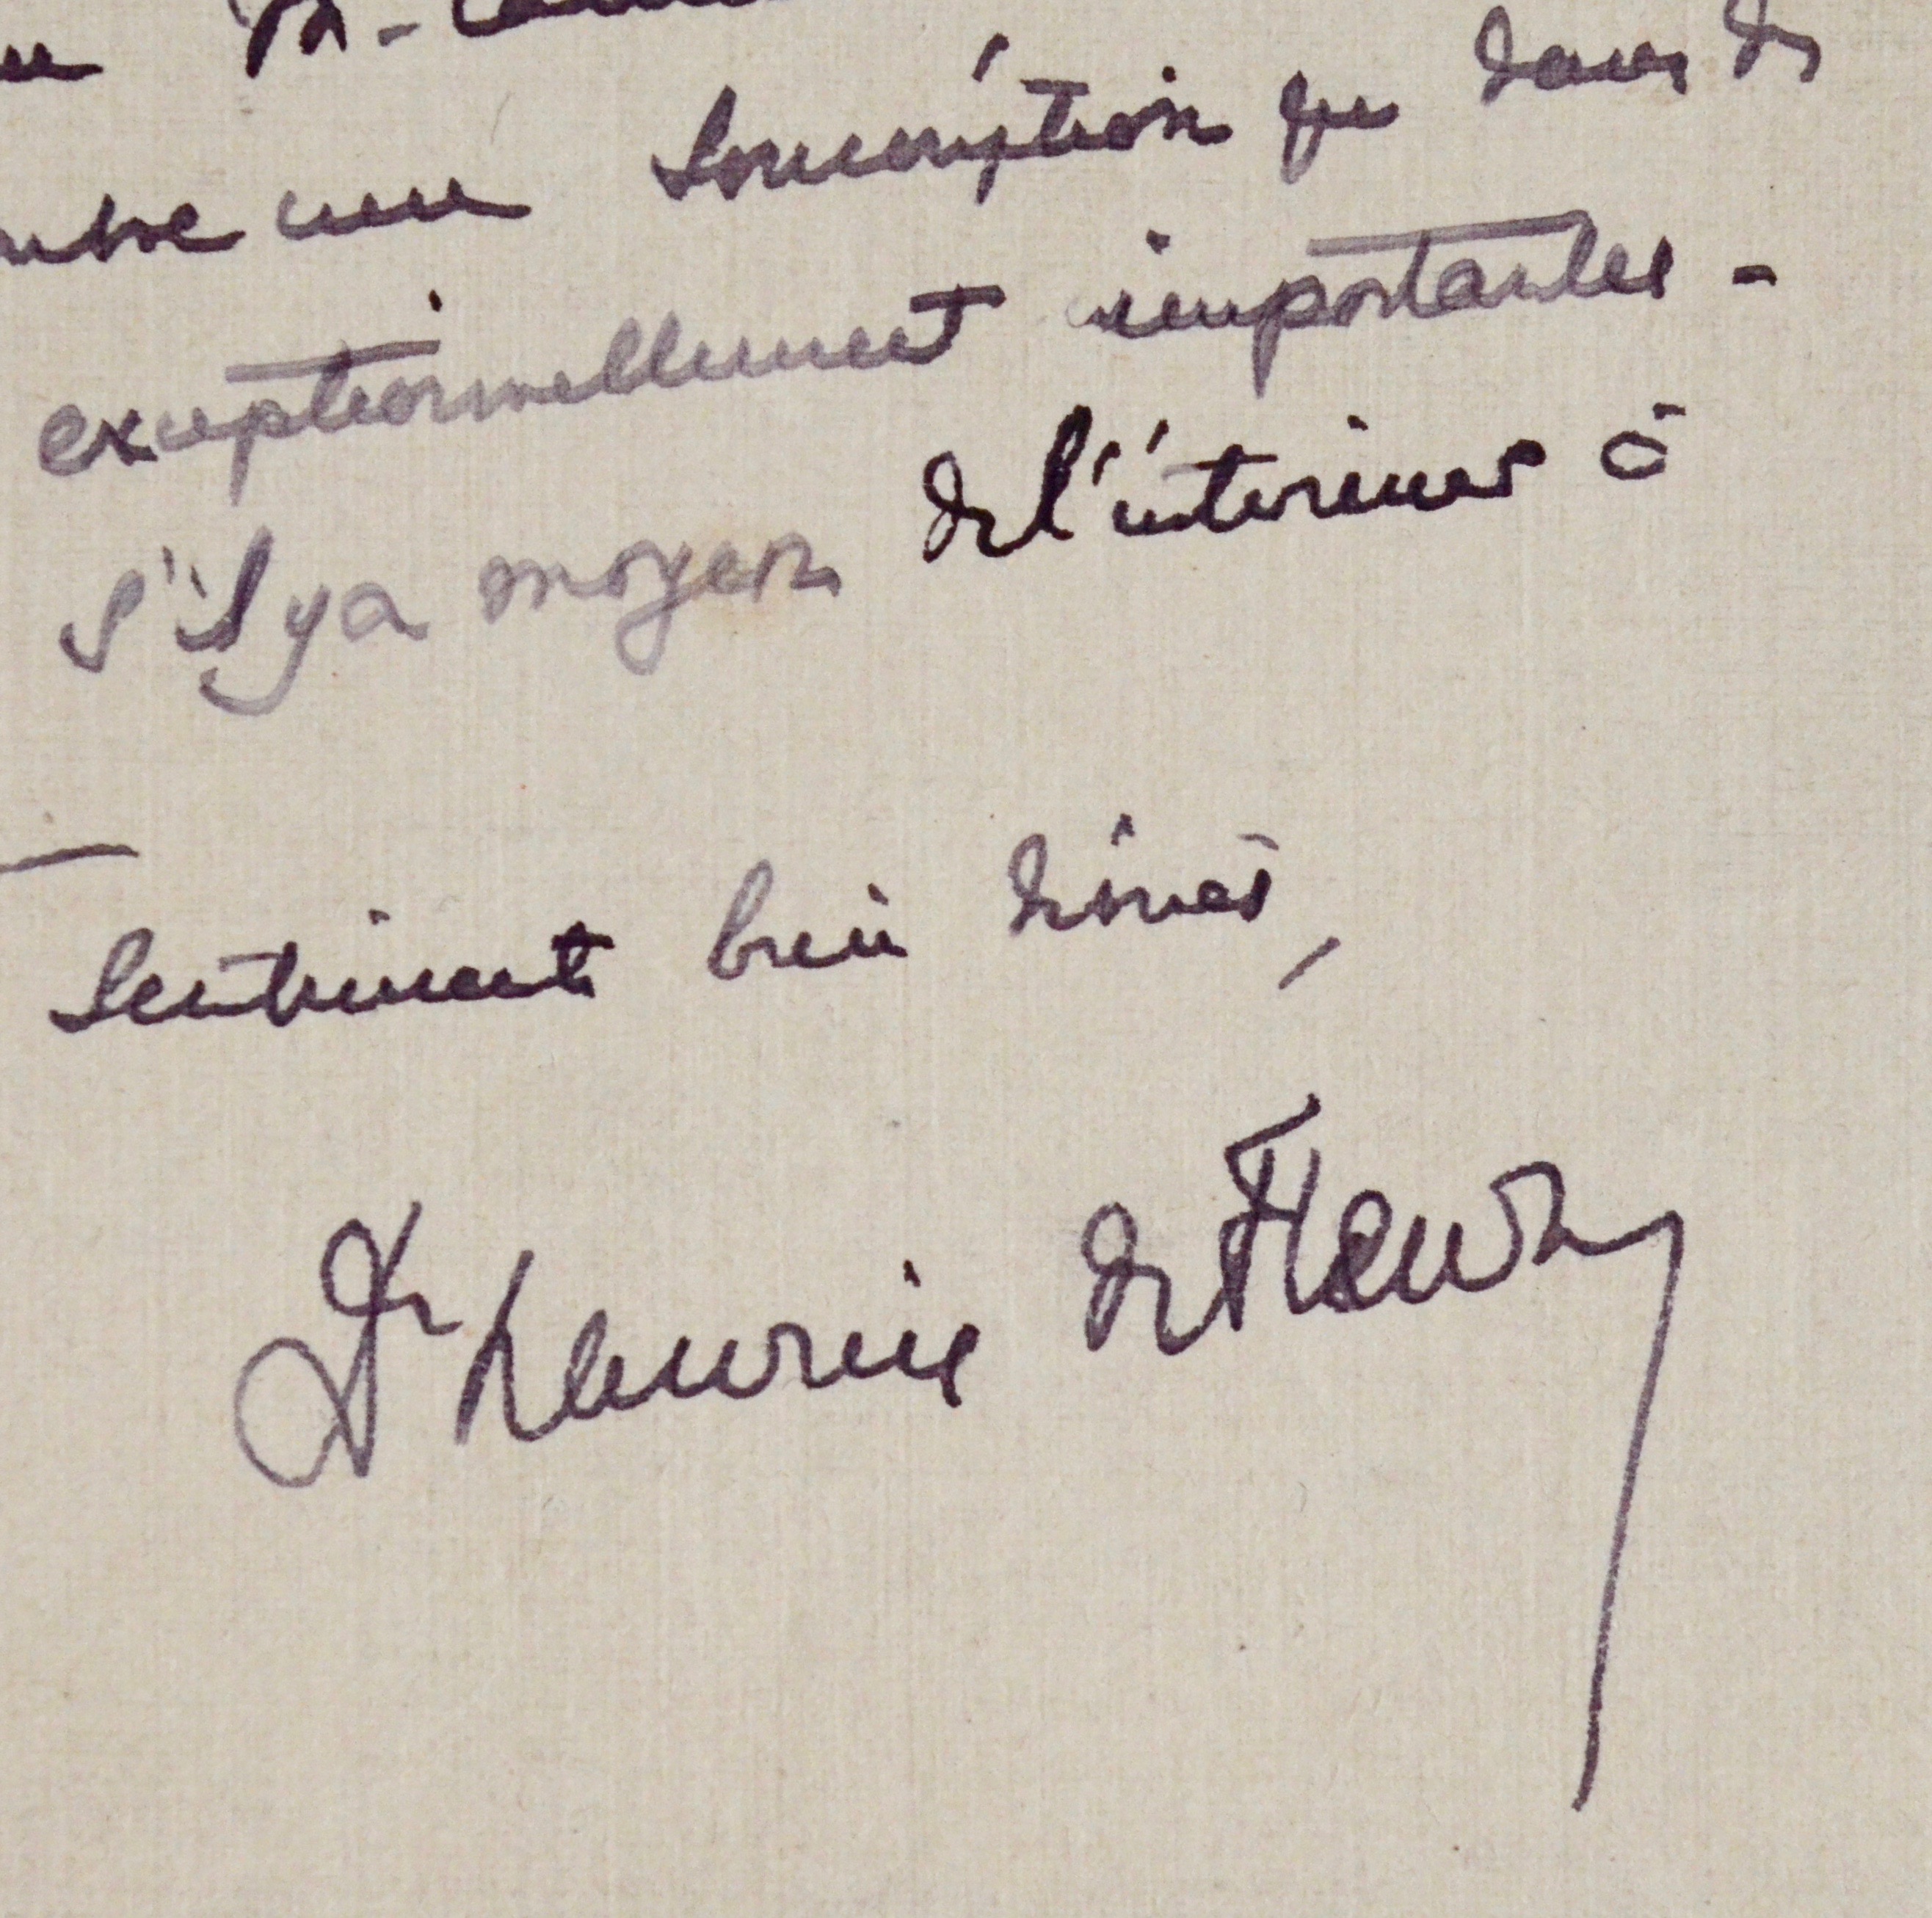 une souscription que dans des
exceptionnellement importantes -
s'il y a moyen de l'intérieur à
Sentiments bien dévoués,
Dr Maurice de Fleury